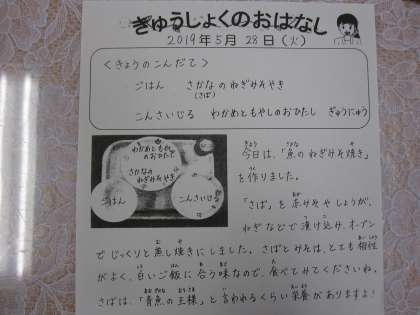 ぎゅうしょくのおはなし
2019年5月28日(火)
<きょうのこんだて>
ごはん さかなのねぎみそやき
(さば)
こんさいじる わかめともやしのおひたし ぎゅうにゅう
わかめともやし
のおひたし
さかなの
ねぎみそやき
ごはん
こんさいじる
今日は、「魚のねぎみそ焼き」
を作りました。
「さば」を赤みそやしょうが、
ねぎなどで漬け込み、オーブン
でじっくりと蒸し焼きにしました。さばとみそは、とても相性
がよく、白いご飯に合う味なので、食べてみてくださいね。
さばは、「青魚の王様」と言われるくらい栄養がありますよ!